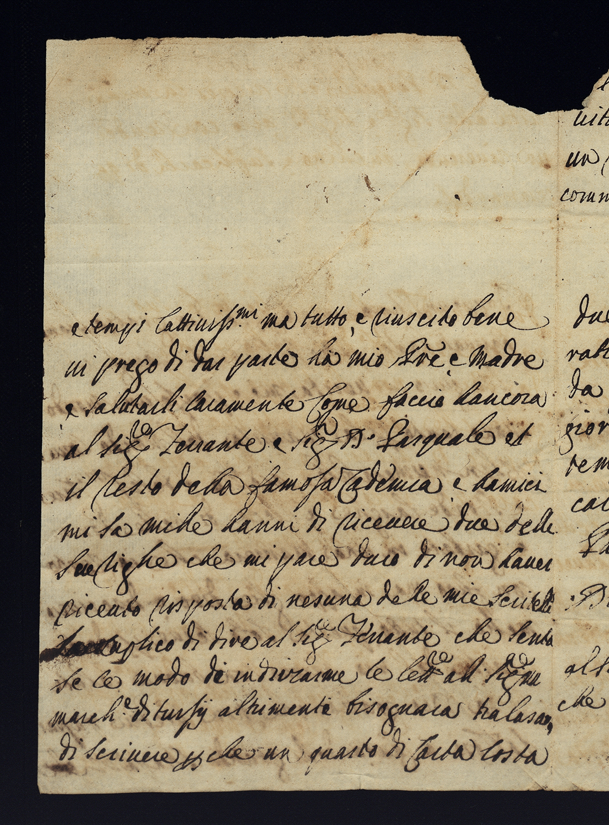 e tempi cattiviss.mi ma tutto è riuscito bene
vi prego di dar parte ha mio Pre è Madre
e Salutarli Caramente Come faccio hancora
al Sig.re Ferrante e Sig.r D. Pasquale et
il resto della famosa Cademia e hamici
mi sa mille hanni di ricevere due delle
Sue righe che mi pare duro di non haver
ricevuto risposta di nesuna delle mie Scritelli
suplico di dire al Sig.re Ferrante che Senta
Se ce modo di indirizarme le lett.re all Sig.ra
march.e di tursij altrimente bisognara tralasar
di Scrivere che un quarto di Carta Costa
un
comm
due
ratt
da
gior
tem
car
Pa
D
al S
che